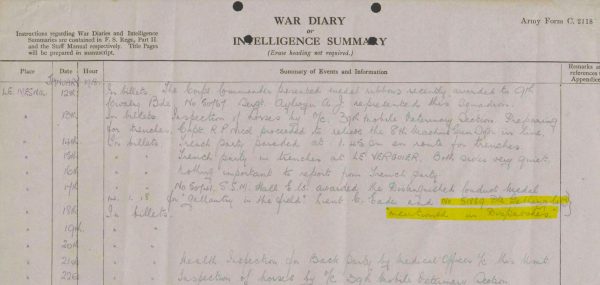 WAR DIARY
or
INTELLIGENCE SUMMARY
(Erase heading not required.)
Army Form C. 2118
Instructions regarding War Diaries and Intelligence
Summaries are contained in F. S. Regs., Part II.
and the Staff Manual respectively. Title Pages
will be prepared in manuscript.
Place Date Hour Summary of Events and Information Remarks and
references to
Appendices
JANUARY
LE MESNIL 12th In billets The Corps Commander presented medal ribbons recently awarded to 9th
Cavalry Bde. No 50767 Sergt A. J. represented this Squadron.
13th In billets. Inspection of horses by O/c. Mobile Veterinary Section. Preparing
for trenches. Capt. proceded to relieve the 8th Machine Gun Sqdn in line.
14th In billets Trench party paraded at 1.45 pm en route for trenches.
15th " " Trench party in trenches at LE VERGUIER. Both sides very quiet.
16th " " Nothing important to report from Trench party.
17th " " S.S.M. Hall awarded the Distinguished Conduct Medal
1.18 for "gallantry in the field" Lieut and No
18th In billets "mentioned in Dispatches"
19th " "
20th " "
21st " " Health Inspection for Back Party by Medical Officer i/c this Unit
22nd " " Inspection of horses by O/c Mobile Veterinary Section